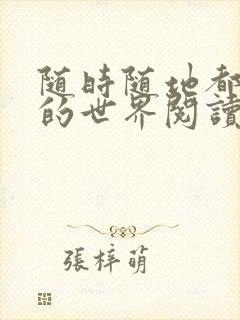 随時随地都
的世界閱讀
張梓萌